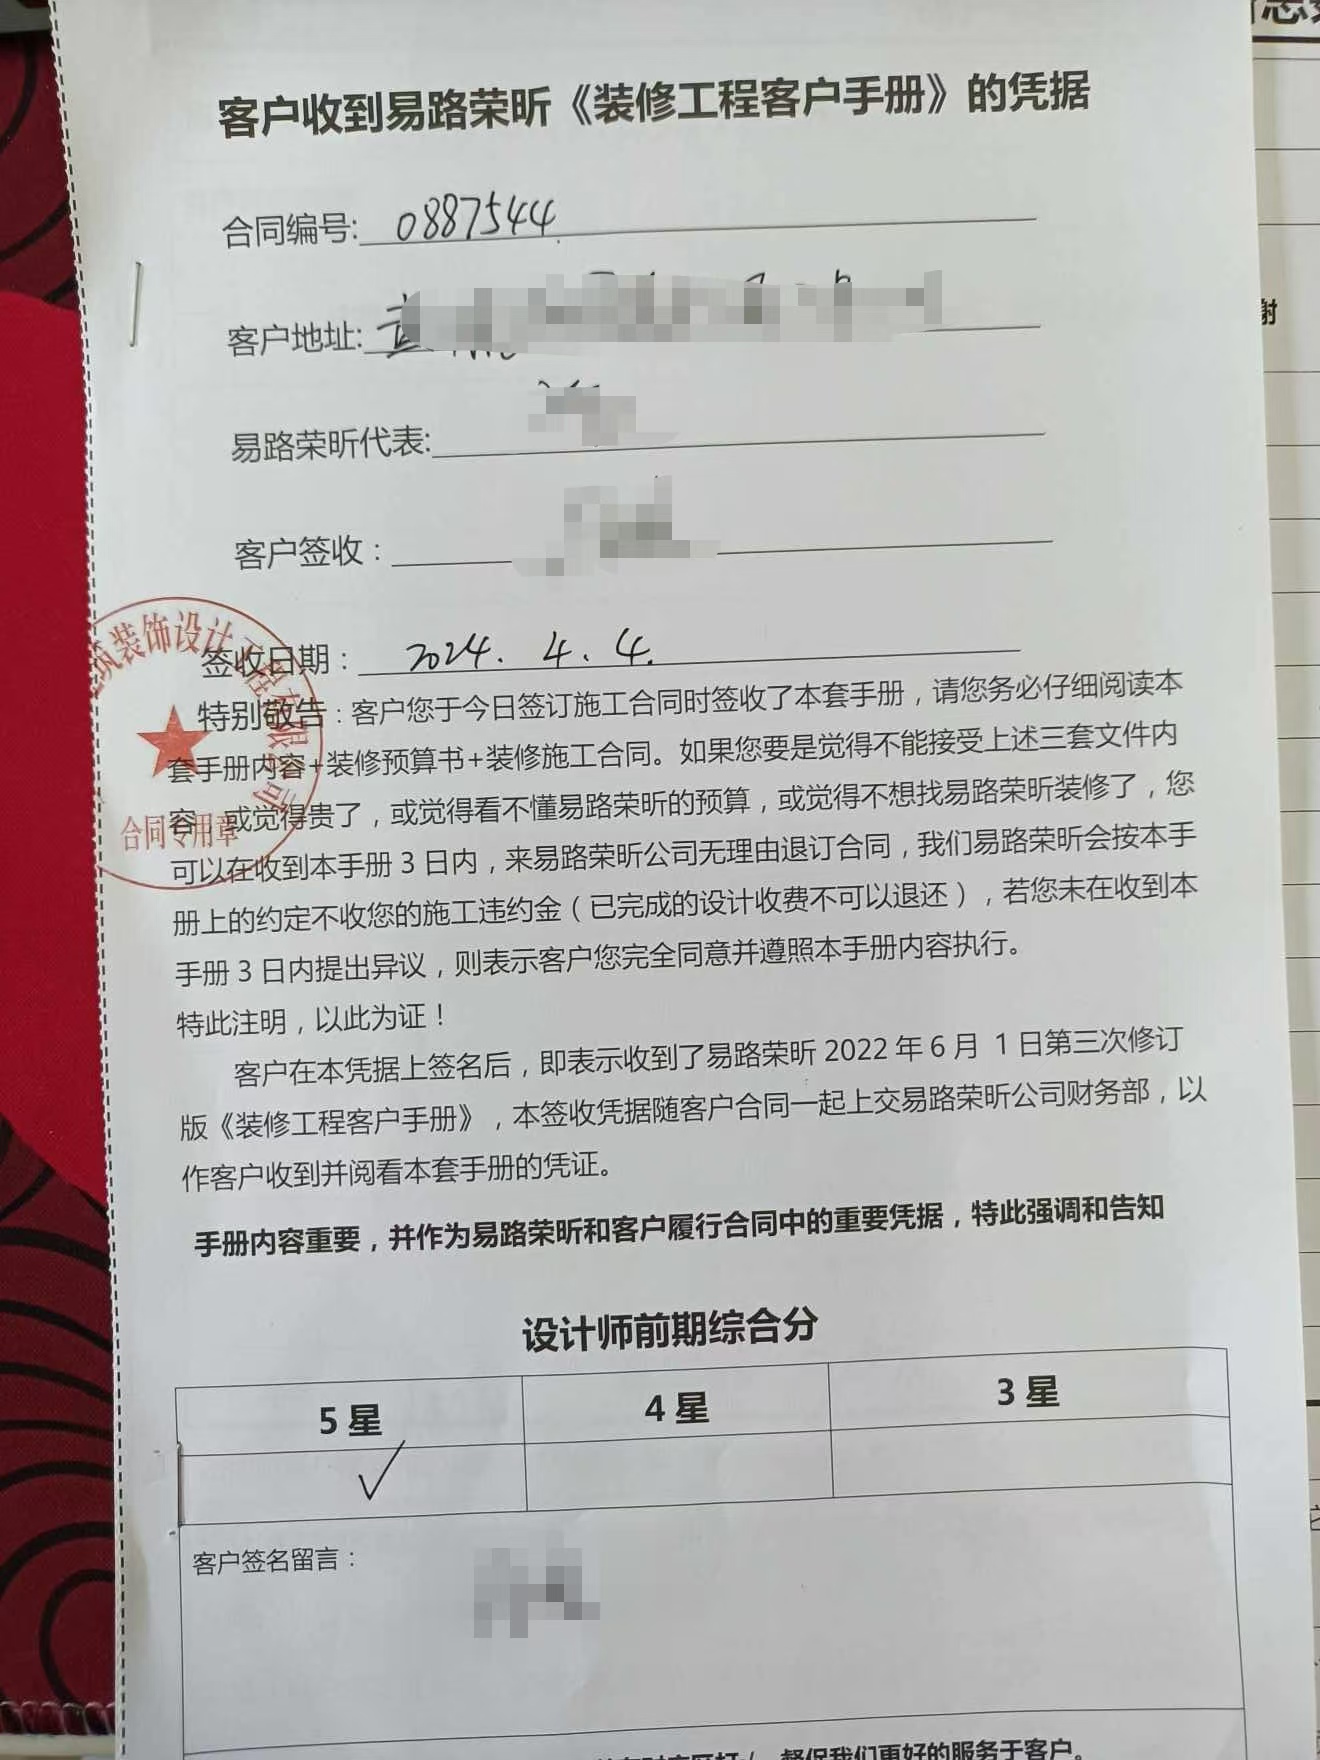 客户收到易路荣昕《装修工程客户手册》的凭据
合同编号: 0887544
客户地址:
易路荣昕代表:
客户签收：
签收日期： 2024. 4. 4.
特别敬告：客户您于今日签订施工合同时签收了本套手册，请您务必仔细阅读本
套手册内容+装修预算书+装修施工合同。如果您要是觉得不能接受上述三套文件内
容，或觉得贵了，或觉得看不懂易路荣昕的预算，或觉得不想找易路荣昕装修了，您
可以在收到本手册 3 日内，来易路荣昕公司无理由退订合同，我们易路荣昕会按本手
册上的约定不收您的施工违约金（已完成的设计收费不可以退还），若您未在收到本
手册 3 日内提出异议，则表示客户您完全同意并遵照本手册内容执行。
特此注明，以此为证！
客户在本凭据上签名后，即表示收到了易路荣昕 2022 年 6 月 1 日第三次修订
版《装修工程客户手册》，本签收凭据随客户合同一起上交易路荣昕公司财务部，以
作客户收到并阅看本套手册的凭证。
手册内容重要，并作为易路荣昕和客户履行合同中的重要凭据，特此强调和告知
筑装饰设计工程有限公司
合同专用章
设计师前期综合分
5 星 4 星 3 星
✓
客户签名留言：
督促我们更好的服务于客户。
谢